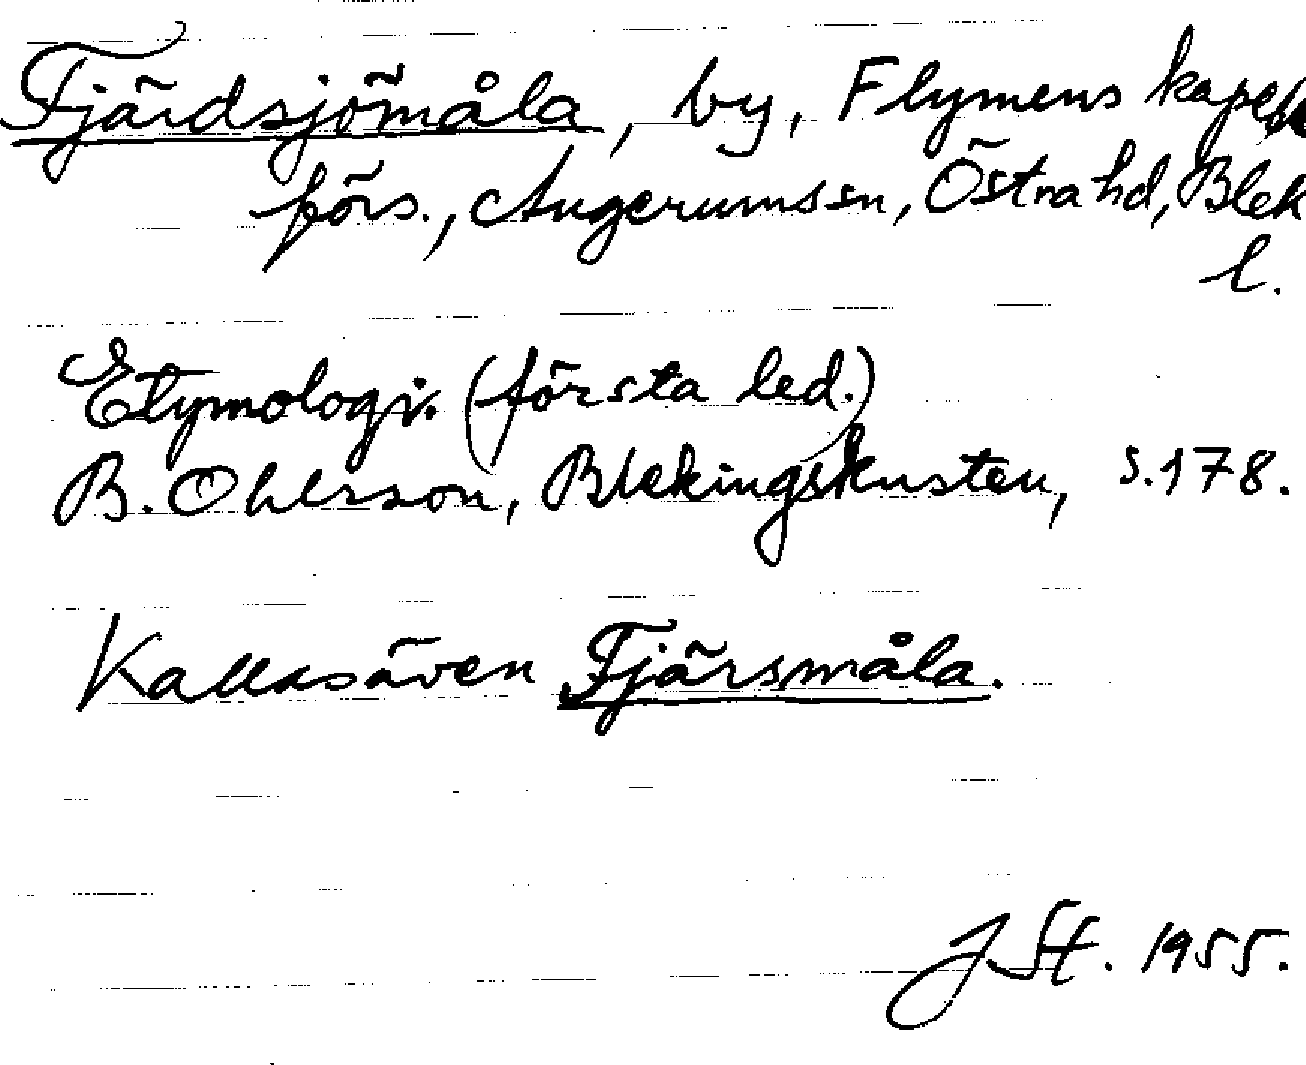 Fjärdsjömåla, by, Flymens kapell
förs., Augerums sn, Östra hd, Blek
l.
Etymologi. (första led.)
B. Ohlsson, Blekingskusten, s. 178.
Kallas även Fjärsmåla.
J St. 1955.